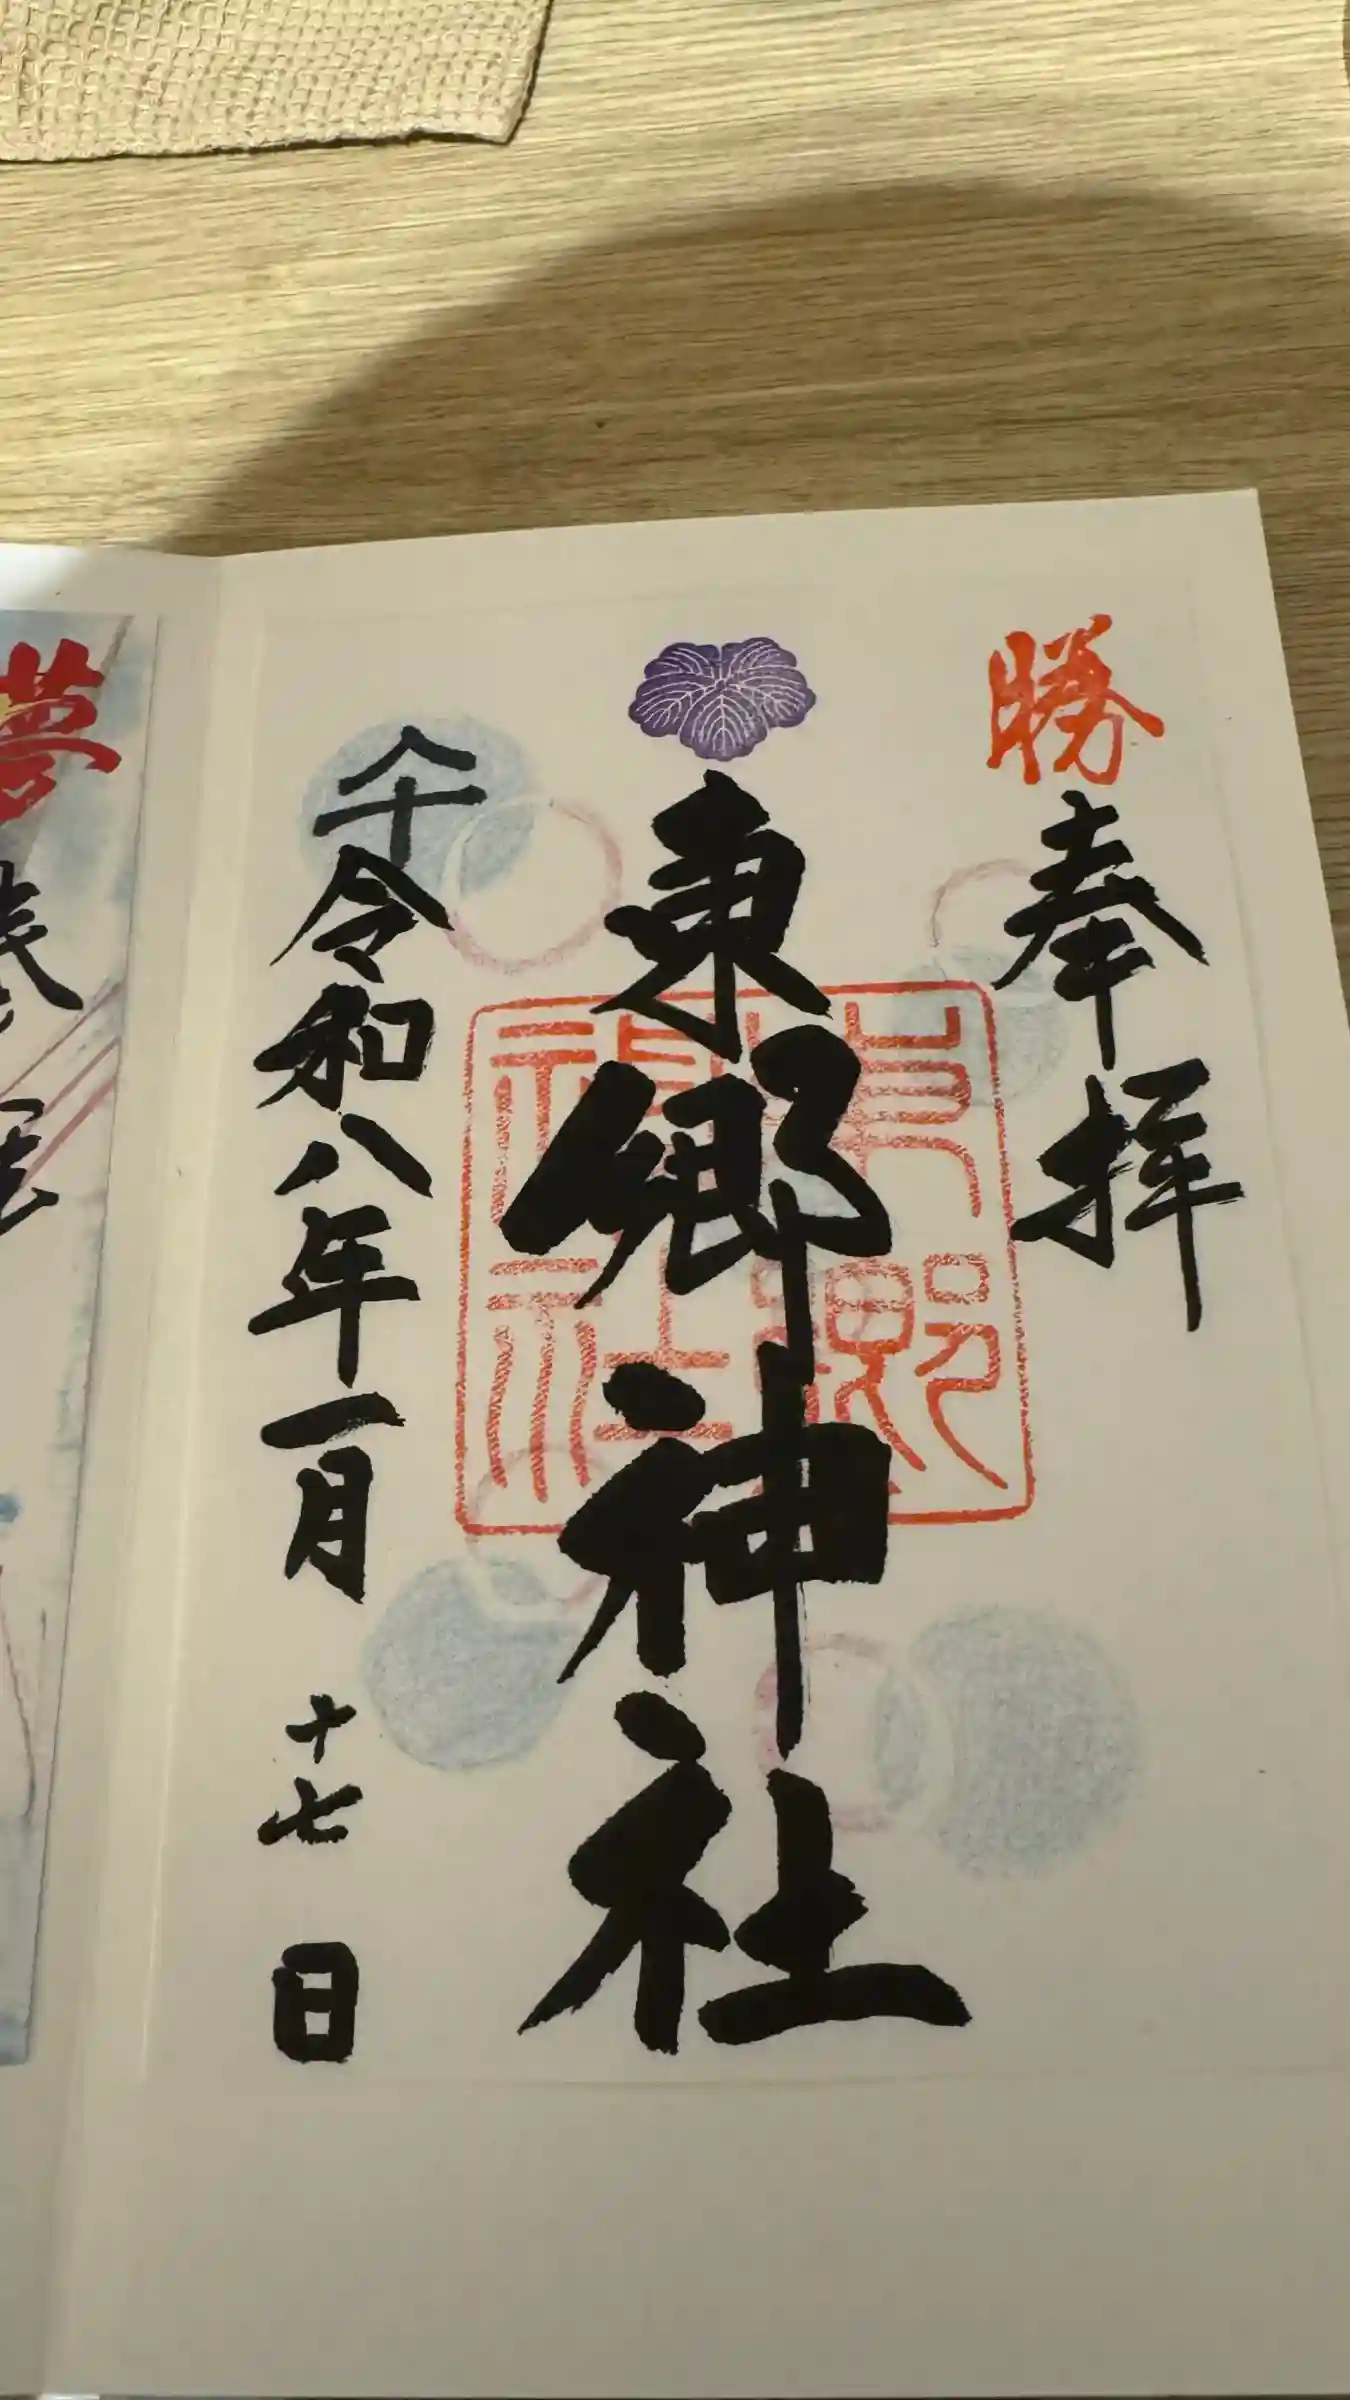 勝
奉拝
東郷神社
東郷神社
令和八年一月十七日
夢